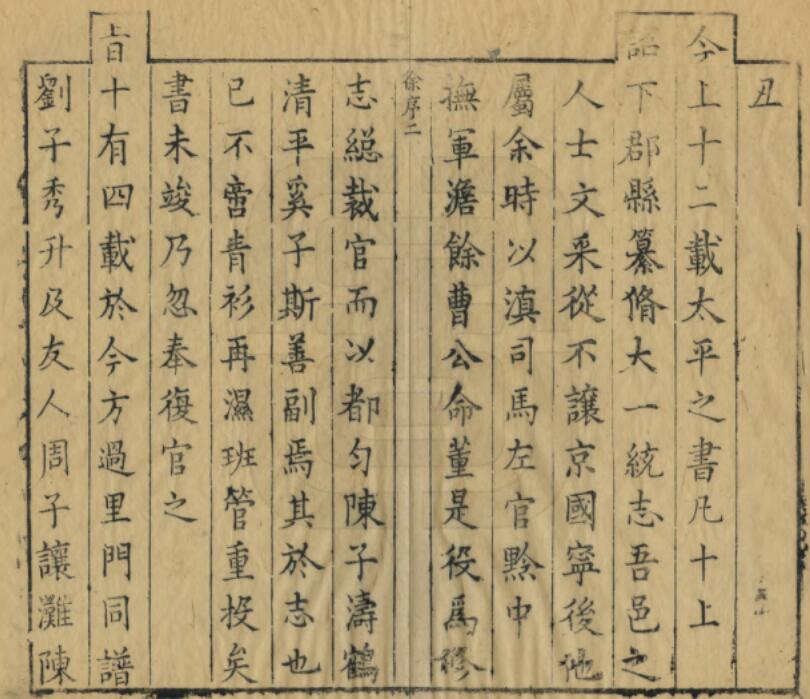 丑
今上十二載太平之書凡十上
詔下郡縣纂脩大一統志吾邑之
人士文采從不讓京國寧後他
屬余時以滇司馬左官黔中
撫軍澹餘曹公命董是役爲修
徐序二
志総裁官而以都勻陳子濤鶴
清平奚子斯善副焉其於志也
已不啻青衫再濕班管重投矣
書未竣乃忽奉復官之
旨十有四載於今方過里門同譜
劉子秀升及友人周子讓灘陳